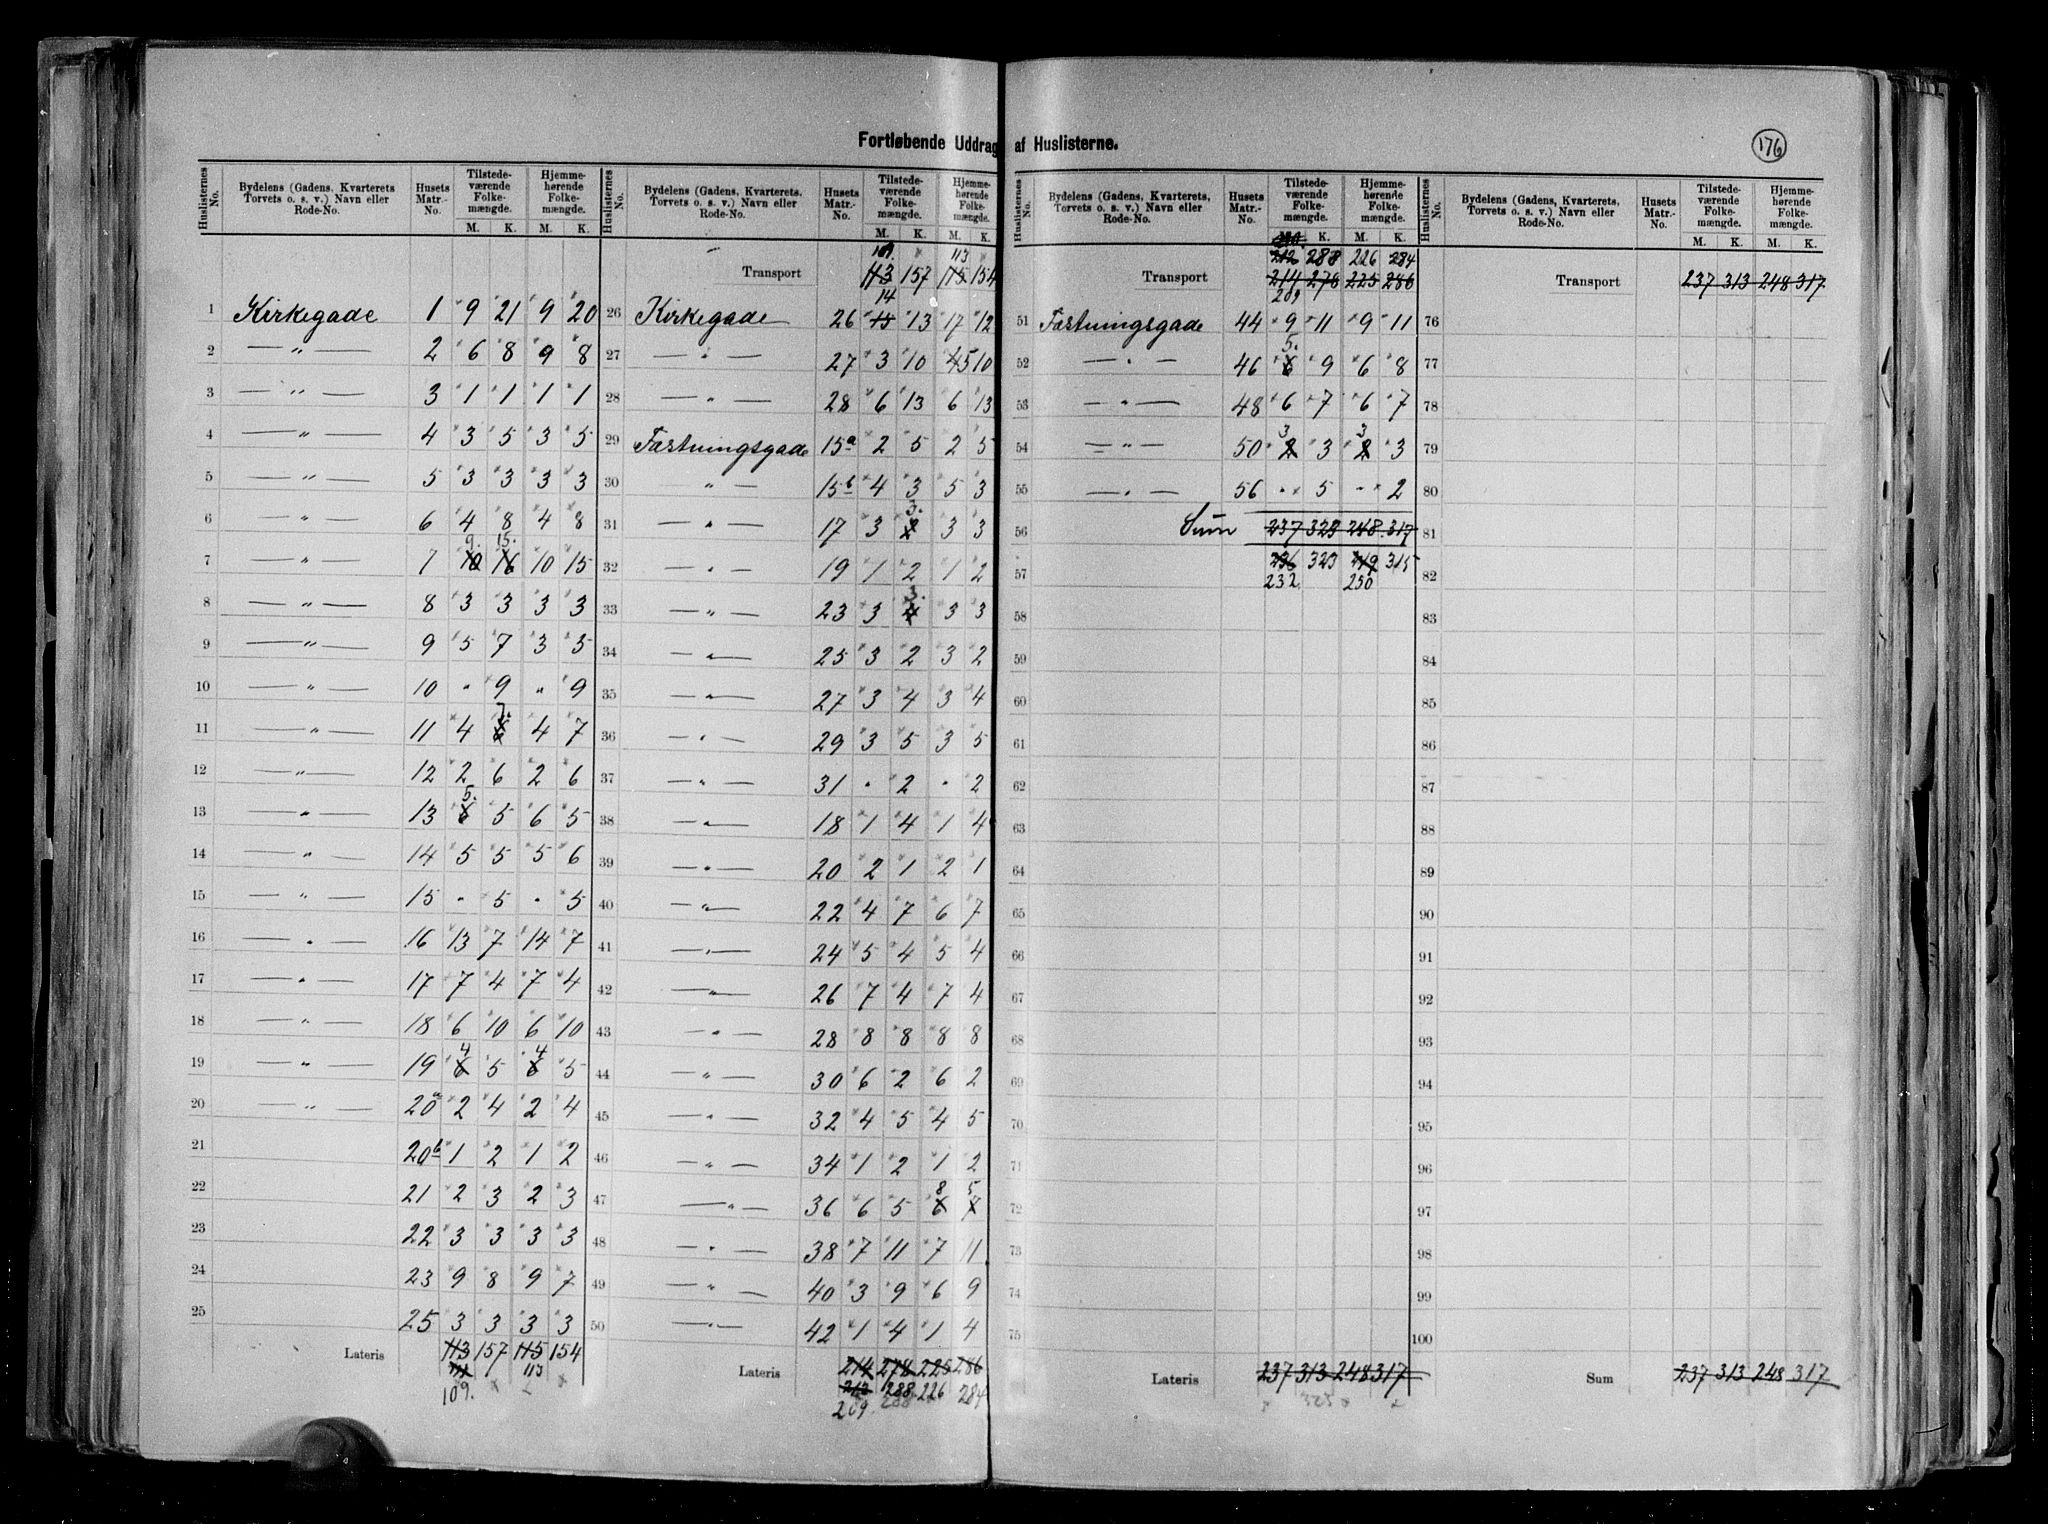 Fortløbende Uddrag af Huslisterne.
176
Huslisternes No. Bydelens (Gadens, Kvarterets, Torvets o. s. v.) Navn eller Rode-No. Husets Matr.-No. Tilstedeværende Folkemængde. M. K. Hjemmehørende Folkemængde. M. K.
1 Kirkegade 1 9 21 9 20
2 — " — 2 6 8 9 8
3 — " — 3 1 1 1 1
4 — " — 4 3 5 3 5
5 — " — 5 3 3 3 3
6 — " — 6 4 8 4 8
9. 15.
7 — " — 7 10 16 10 15
8 — " — 8 3 3 3 3
9 — " — 9 5 7 3 5
10 — " — 10 " 9 " 9
7.
11 — " — 11 4 6 4 7
12 — " — 12 2 6 2 6
5.
13 — " — 13 6 5 6 5
14 — " — 14 5 5 5 6
15 — " — 15 " 5 " 5
16 — " — 16 13 7 14 7
17 — " — 17 7 4 7 4
18 — " — 18 6 10 6 10
4 4
19 — " — 19 6 5 6 5
20 — " — 20a 2 4 2 4
21 20b 1 2 1 2
22 21 2 3 2 3
23 22 3 3 3 3
24 23 9 8 9 7
25 25 3 3 3 3
Lateris 113 157 115 154
111 113
109.
Huslisternes No. Bydelens (Gadens, Kvarterets, Torvets o. s. v.) Navn eller Rode-No. Husets Matr.-No. Tilstedeværende Folkemængde. M. K. Hjemmehørende Folkemængde. M. K.
109. 113
Transport 113 157 115 154
14
26 Kirkegade 26 15 13 17 12
27 — " — 27 3 10 45 10
28 — " — 28 6 13 6 13
29 Fæstningsgade 15a 2 5 2 5
30 — " — 15b 4 3 5 3
3.
31 — " — 17 3 2 3 3
32 — " — 19 1 2 1 2
3.
33 — " — 23 3 4 3 3
34 — " — 25 3 2 3 2
35 — " — 27 3 4 3 4
36 — " — 29 3 5 3 5
37 — " — 31 " 2 " 2
38 — " — 18 1 4 1 4
39 — " — 20 2 1 2 1
40 — " — 22 4 7 6 7
41 — " — 24 5 4 5 4
42 — " — 26 7 4 7 4
43 — " — 28 8 8 8 8
44 — " — 30 6 2 6 2
45 — " — 32 4 5 4 5
46 — " — 34 1 2 1 2
8 5
47 — " — 36 6 5 6 8
48 — " — 38 7 11 7 11
49 — " — 40 3 9 6 9
50 — " — 42 1 4 1 4
Lateris 214 278 225 286
212 288 226 284
209. 288 284
Huslisternes No. Bydelens (Gadens, Kvarterets, Torvets o. s. v.) Navn eller Rode-No. Husets Matr.-No. Tilstedeværende Folkemængde. M. K. Hjemmehørende Folkemængde. M. K.
212 288 226 284
Transport 214 278 225 286
209
51 Fæstningsgade 44 9 11 9 11
5.
52 — " — 46 6 9 6 8
53 — " — 48 6 7 6 7
3 3
54 — " — 50 2 3 2 3
55 — " — 56 " 5 " 2
56 Sum 237 323 248 317
57 236 323 249 315
232 250
58
59
60
61
62
63
64
65
66
67
68
69
70
71
72
73
74
75
Lateris 237 313 248 317
323
Huslisternes No. Bydelens (Gadens, Kvarterets, Torvets o. s. v.) Navn eller Rode-No. Husets Matr.-No. Tilstedeværende Folkemængde. M. K. Hjemmehørende Folkemængde. M. K.
Transport 237 313 248 317
76
77
78
79
80
81
82
83
84
85
86
87
88
89
90
91
92
93
94
95
96
97
98
99
100
Sum 237 313 248 317